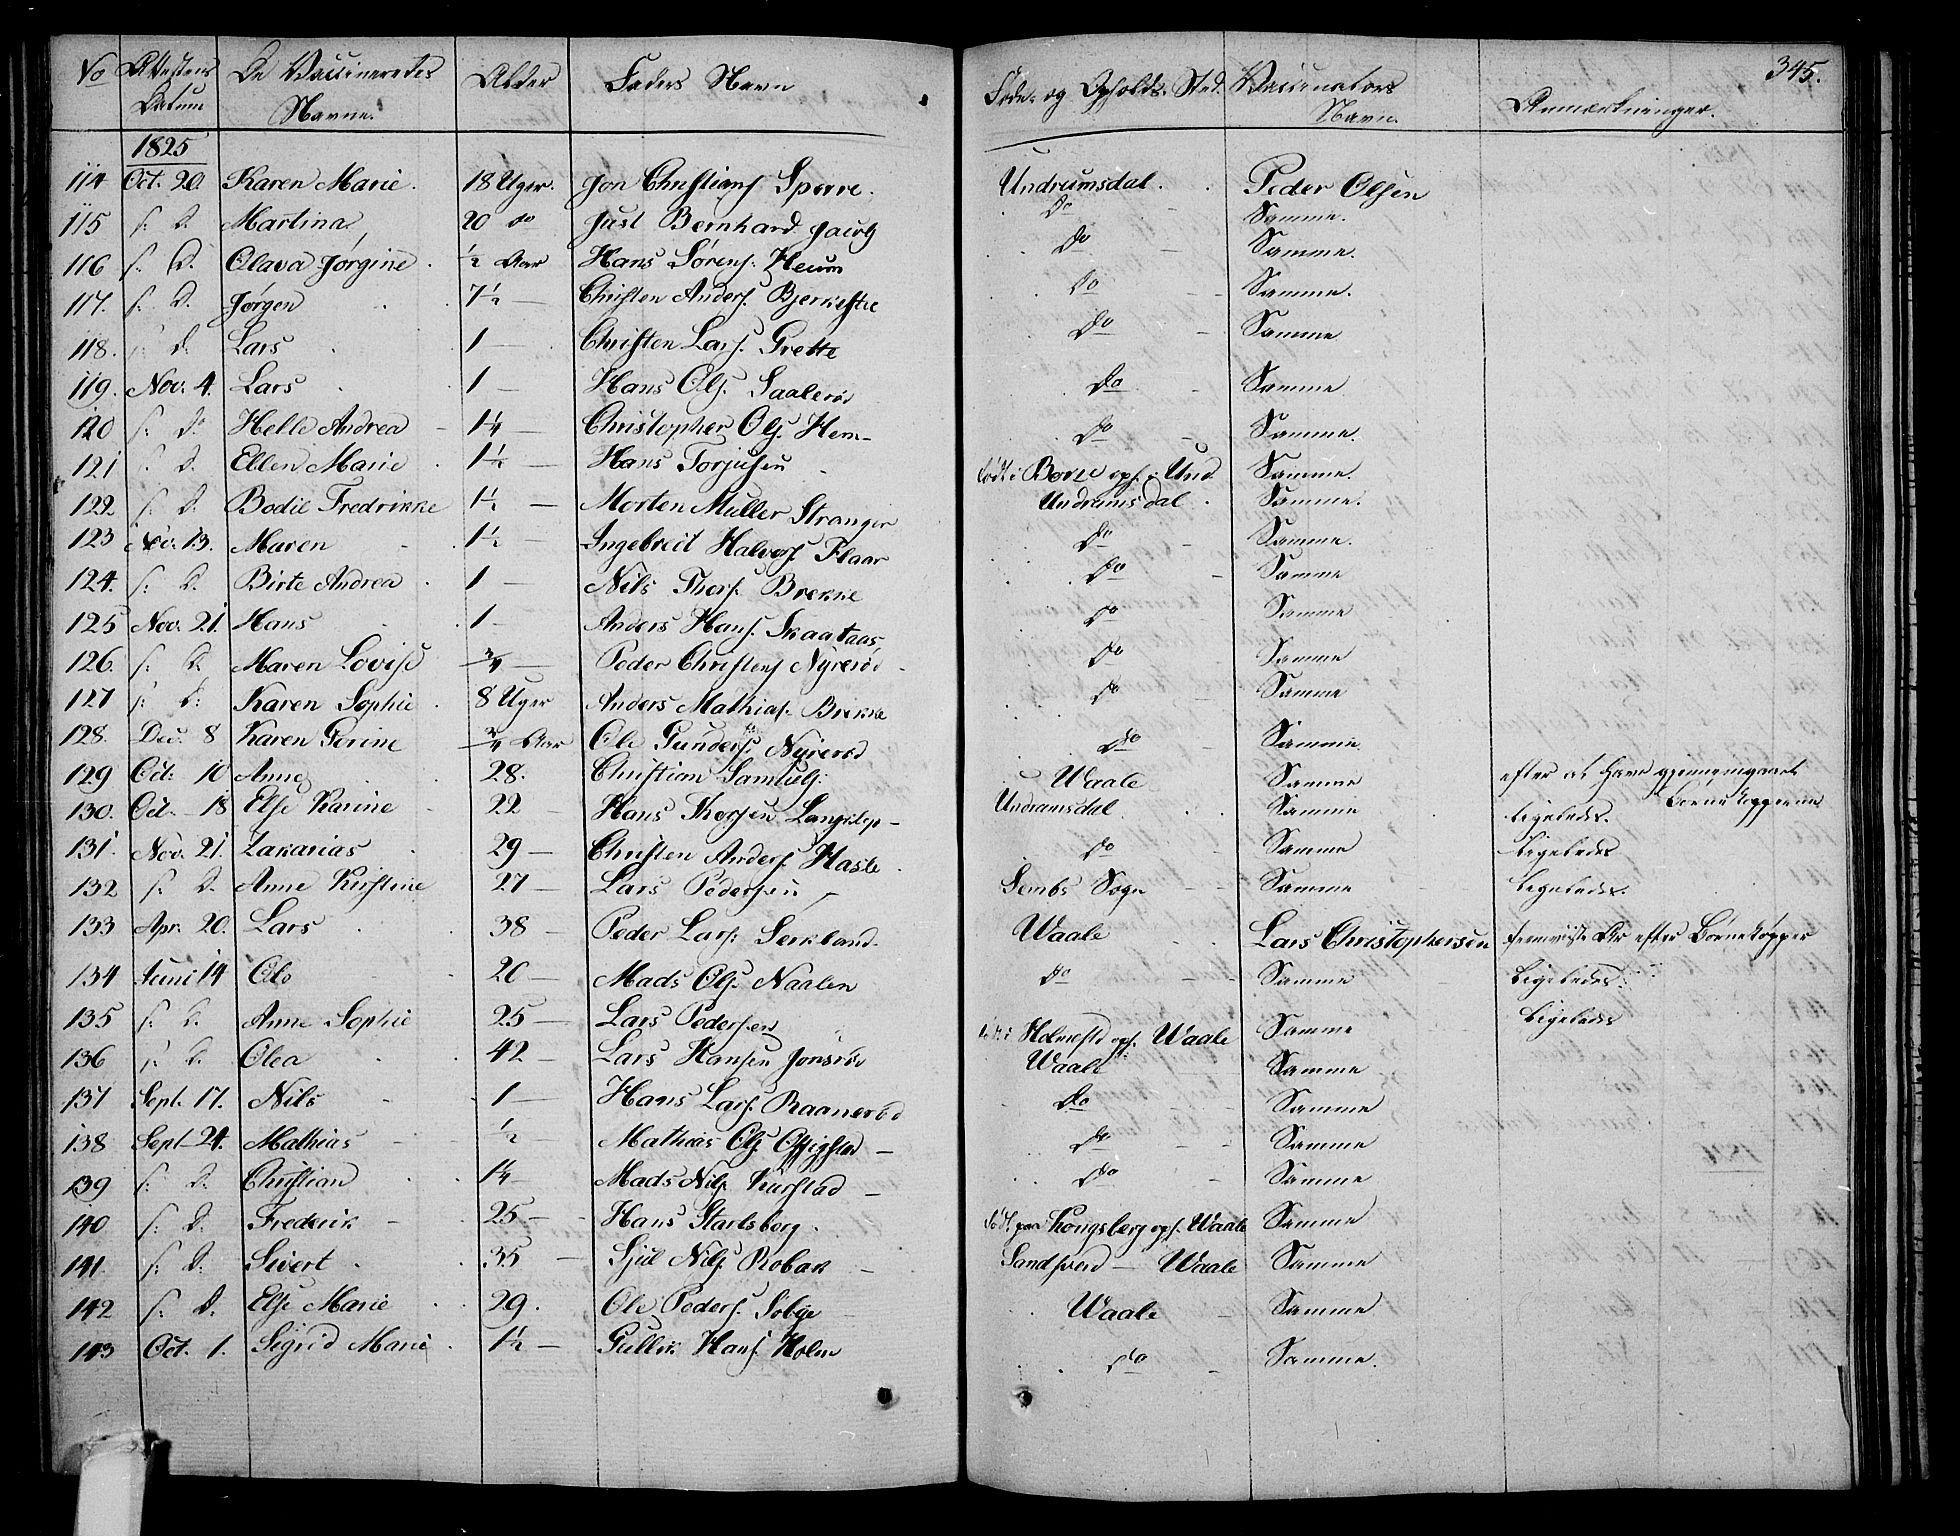 345.
No Attestens Datum De Vaccineredes Navne. Alder Faders Navn Føde- og Opholds-Sted. Vaccinators Navn. Anmærkninger.
1825
114 Oct. 20. Karen Marie. 18 Uger. Jon Christians. Sperre. Undrumsdal. Peder Olsen
115 s. D. Martina 20 do Just Bernhard Jacobs. Do Samme.
116 s. D. Olava Jørgine. ½ Aar Hans Sørens. Heum Do Samme.
117. s. D. Jørgen 7½ — Christen Anders. Do Samme.
118. s. D. Lars 1 — Christen Lars. Grette Do Samme
119. Nov. 4. Lars 1 — Hans Ols. Saalerød Do Samme
120 s. Do Helle Andrea 1¼ — Christopher Ols. Hem — Do Samme.
121 s. D. Ellen Marie 1½ — Hans Torjusen født i Borre oph. i Und. Samme.
122 s. D. Bodil Fredrikke 1½ — Morten Müller Stranger Undrumsdal. Samme.
123 Nov. 13. Maren 1½ — Ingebrect Halvors. Flaar Do Samme.
124. s. D. Birte Andrea 1 — Nils Thors. Brekke Do Samme
125 Nov. 21. Hans 1 — Anders Hans. Skaataas Do Samme
126. s. D. Maren Lovise ¾ — Peder Christens. Nyrerød Do Samme
127 s. D. Karen Sophie 8 Uger Anders Mathias. Brekke Do Samme
128. Dec. 8 Karen Gerine ¾ Aar Ole Gunders. Nyrerød Do Samme
129 Oct. 10 Anne 28. Christian Samuels. Waale Samme efter at have gjennemgaaet Børnekopperne
130. Oct. 18 Else Karine 22 — Hans Undramsdal Samme Ligeledes.
131. Nov. 21. Zakarias 29 — Christen Anders. Hasle Do Samme Ligeledes
132 s. D. Anne Kirstine 27 — Lars Pedersen Sembs Sogn Samme Ligeledes.
133 Apr. 20. Lars 38 — Peder Lars. Waale Lars Christophersen fremviste Ar efter Børnekopper
134 Juni 14 Ole 20 — Mads Ols. Naalen Do Samme Ligeledes.
135 s. D. Anne Sophie 25 — Lars Pedersen født i oph. Waale Samme Ligeledes
136 s. D. Olea 42 — Lars Hansen Jonsrød Waale Samme
137 Sept. 17. Nils 1 — Hans Lars. Raanerød Do Samme
138 Sept. 24. Mathias ½ — Mathias Ols. Do Samme
139 s. D. Christian 1¼ — Mads Nils. Do Samme
140 s. D. Frederik 25 — Hans Starlsberg. født paa Kongsberg oph. Waale Samme
141. s. D. Sivert 35 — Sjul Nils. Robak Sandsverd — Waale Samme
142 s. D. Else Marie 29. Ole Peders. Solvge Waale Samme
143 Oct. 1. Sigrid Marie 1½ — Gullik Hans. Holm Do Samme.